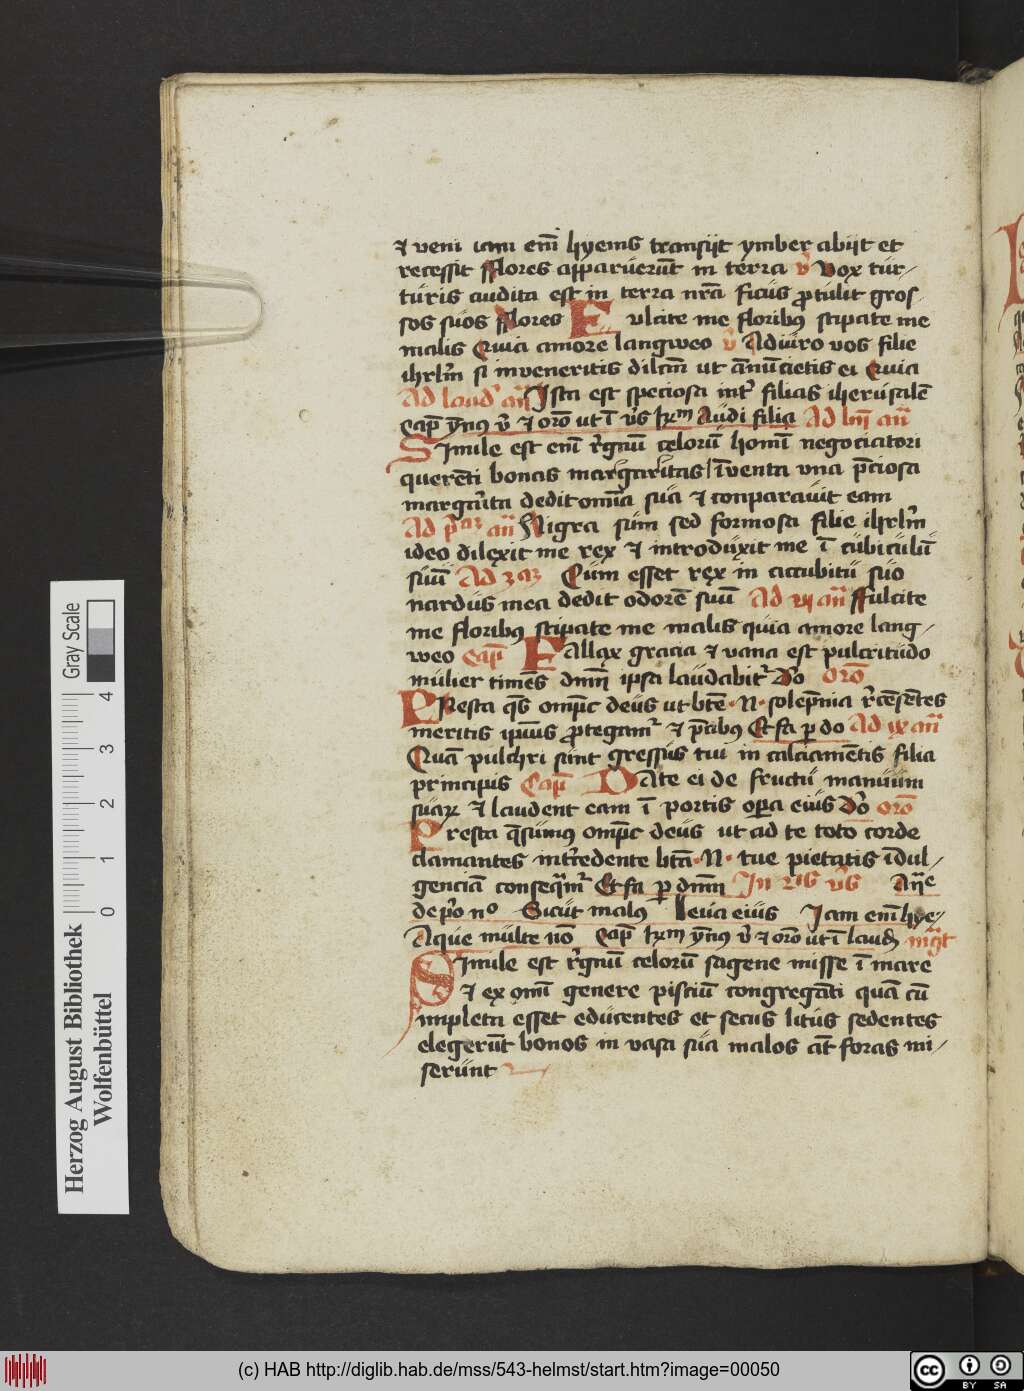 ⁊ veni iam em̄ hyems transijt ymber abijt et
recessit fflores apparuerūt in terra v̄ Vox tur-
turis audita est in terra nr̄a ficus ꝓtulit gros-
sos suos fflores Fulcite me floribꝫ stipate me
malis Quia amore langweo v̄ Adiuro vos filie
ihrlm̄ si inueneritis dilcm̄ ut ānūcietis ei Quia
Ad laud' an̄ Ista est speciosa int' filias iherusalē
Cap̄ ym̄ꝰ v̄ ⁊ orō ut ī v̄s lxᵐ Audi filia Ad lm̄ an̄
Simile est em̄ r̄gnū celorū homī negociatori
querēti bonas margaritas īventa vna p̄ciosa
margarita dedit omīa sua ⁊ conparavit eam
Ad p̄ᵃᵐ an̄ Nigra sum sed formosa filie ihrlm̄
ideo dilexit me rex ⁊ introduxit me ī cubiculū
suū Ad 3ᵃᵐ Cum esset rex in accubitu suo
nardus mea dedit odorē suū Ad vj an̄ ffulcite
me floribꝫ stipate me malis quia amore lang-
weo Cap̄ Fallax gracia ⁊ vana est pulcritudo
mulier timēs dnm̄ ipsa laudabit' do orō
Presta qs̄ omp̄c deus ut btē ·N· solēpnia r̄censētes
meritis ipiꝰ ꝓtegam' ⁊ p̄cibꝫ Et fa ꝑ do Ad ix an̄
Quā pulchri sunt gressus tui in calciamētis filia
principis Cap̄ Date ei de fructu manuum
suaꝝ ⁊ laudent eam ī portis oꝑa eius do orō
Presta qs̄umꝰ omp̄c deus ut ad te toto corde
clamantes intˀcedente btā ·N· tue pietatis īdul-
genciā conseqm̄ᵣ Et fa ꝑ dnm̄ In 2is v̄s An̄e
de p̄o nº Sicut malꝰ Leua eius Iam em̄ hye-
Aque multe nō Cap̄ lxᵐ ym̄ꝰ v̄ ⁊ orō ut ī laud' mg̅t
Simile est r̄gnū celorū sagene misse ī mare
⁊ ex omī genere pisciū congregāti quā cū
impleta esset educentes et secus litus sedentes
elegerūt bonos in vasa sua malos aūt foras mi-
serunt
Gray Scale
4
3
2
1
0
Herzog August Bibliothek
Wolfenbüttel
(c) HAB http://diglib.hab.de/mss/543-helmst/start.htm?image=00050
cc BY SA